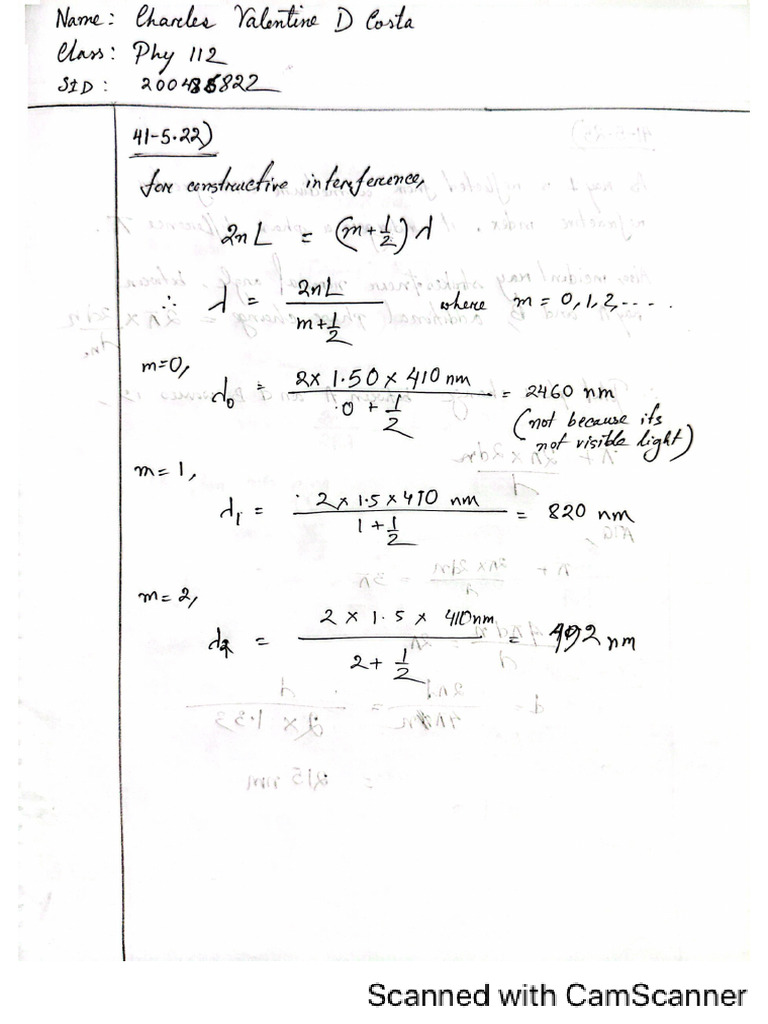 Name: Charles Valentine D Costa
Class: Phy 112
SID: 200435822
41-5.22)
for constructive interference,
2nL = (m+1/2)λ
∴ λ = 2nL / (m+1/2) where m = 0, 1, 2, ....
m=0, λ₀ = (2 × 1.50 × 410 nm) / (0 + 1/2) = 2460 nm
(not because its
not visible light)
m = 1,
λ₁ = (2 × 1.5 × 410 nm) / (1 + 1/2) = 820 nm
m = 2,
λ₂ = (2 × 1.5 × 410 nm) / (2 + 1/2) = 492 nm
Scanned with CamScanner